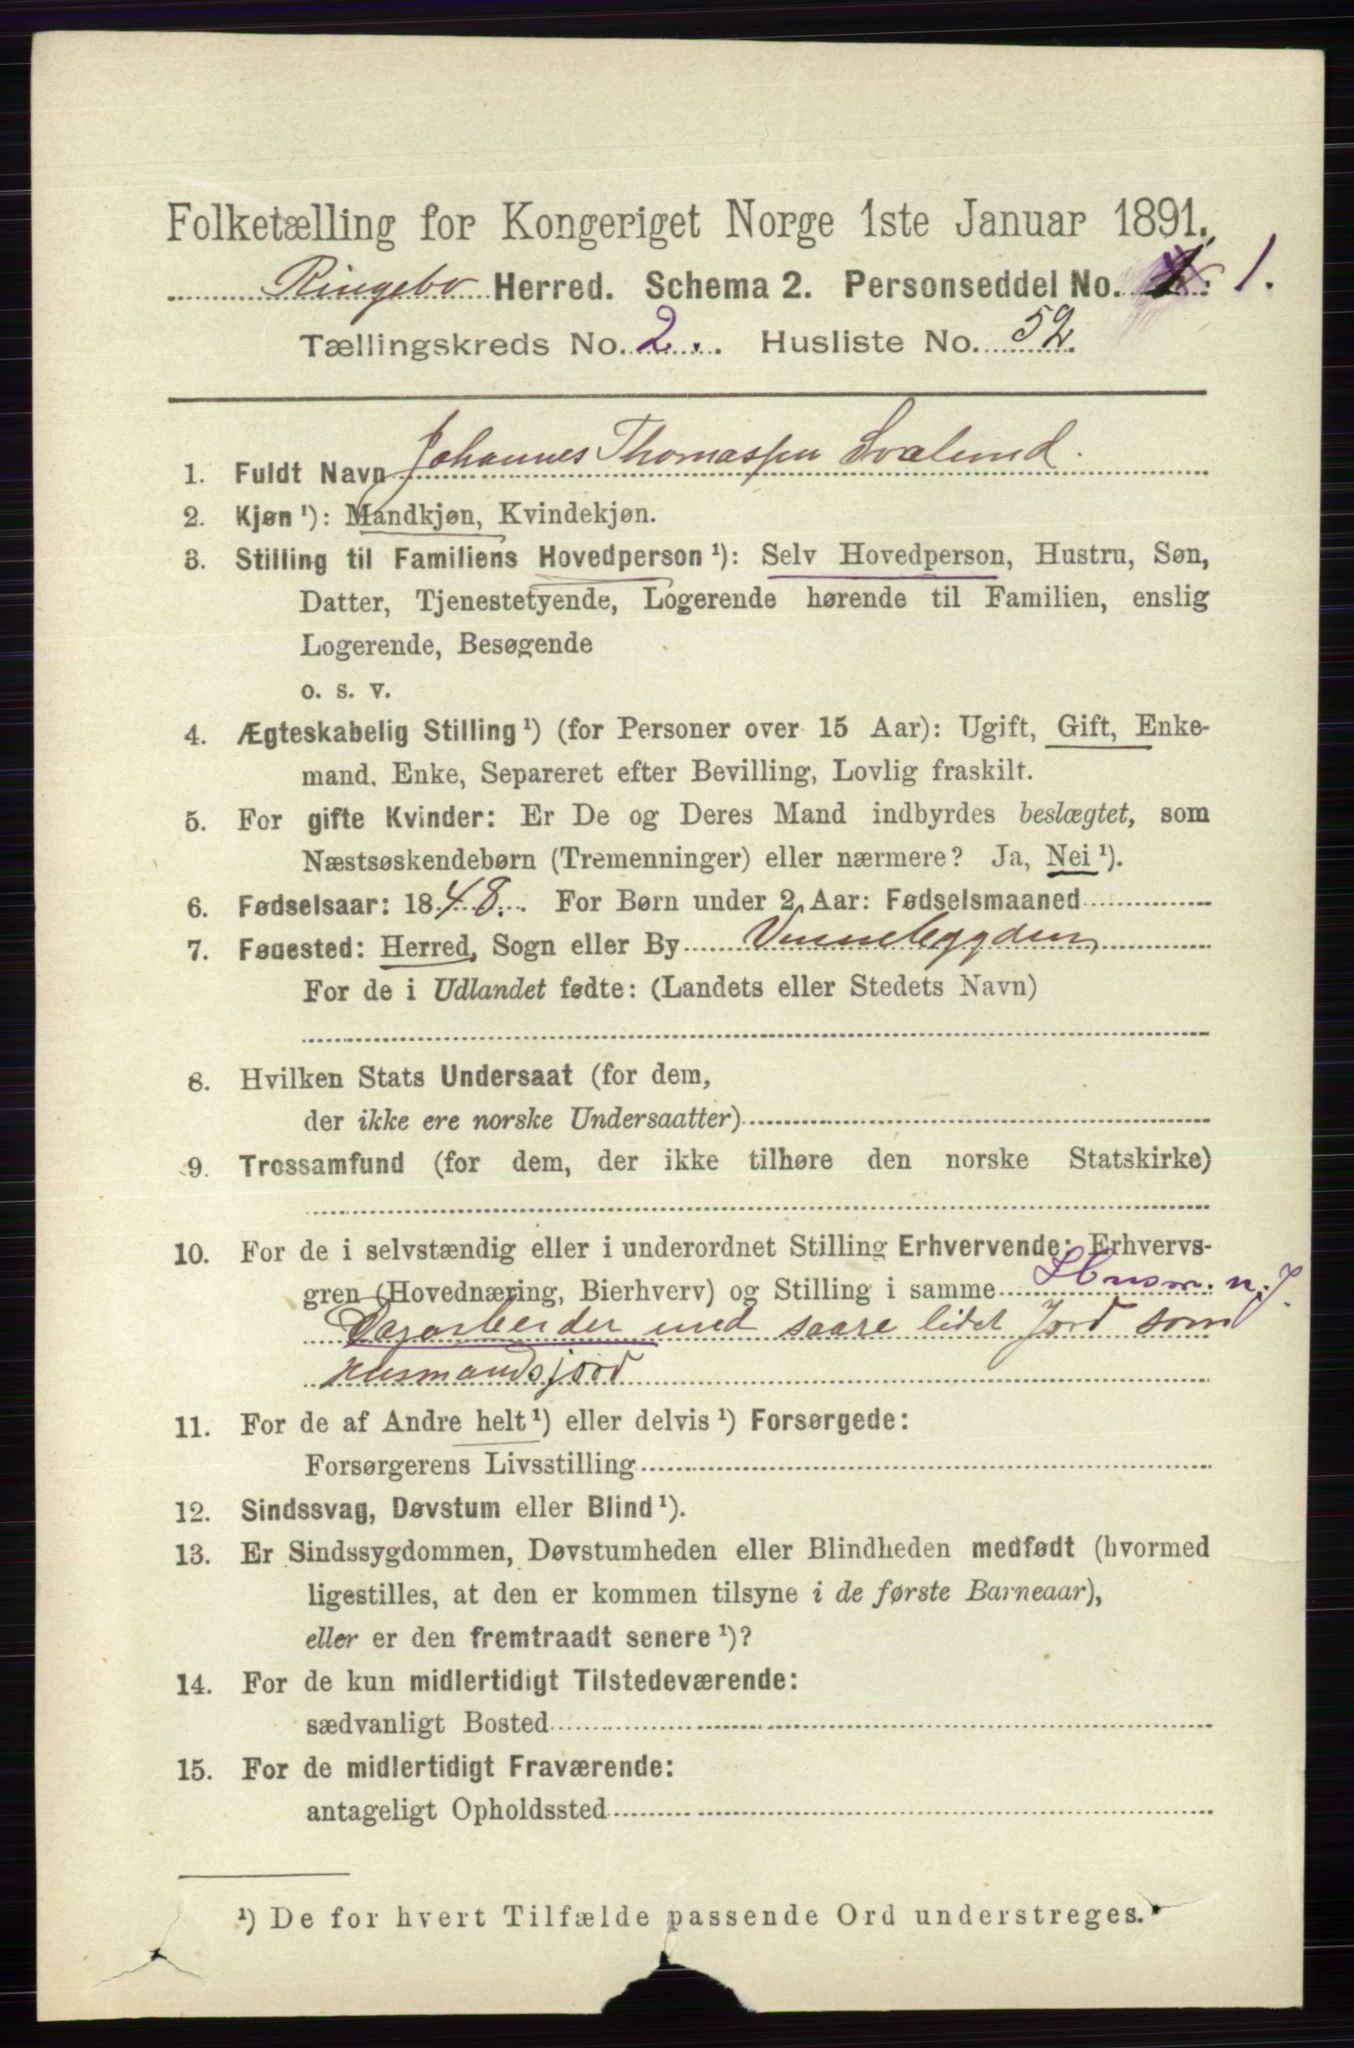 Folketælling for Kongeriget Norge 1ste Januar 1891.
Ringebo Herred. Schema 2. Personseddel No. 1.
Tællingskreds No. 2. Husliste No. 52.
1. Fuldt Navn Johannes Thomassen Svalund.
2. Kjøn ¹): Mandkjøn, Kvindekjøn.
3. Stilling til Familiens Hovedperson ¹): Selv Hovedperson, Hustru, Søn,
Datter, Tjenestetyende, Logerende hørende til Familien, enslig
Logerende, Besøgende
o. s. v.
4. Ægteskabelig Stilling ¹) (for Personer over 15 Aar): Ugift, Gift, Enke-
mand, Enke, Separeret efter Bevilling, Lovlig fraskilt.
5. For gifte Kvinder: Er De og Deres Mand indbyrdes beslægtet, som
Næstsøskendebørn (Tremenninger) eller nærmere? Ja, Nei ¹).
6. Fødselsaar: 1848. For Børn under 2 Aar: Fødselsmaaned
7. Fødested: Herred, Sogn eller By Vennebygden
For de i Udlandet fødte: (Landets eller Stedets Navn)
8. Hvilken Stats Undersaat (for dem,
der ikke ere norske Undersaatter)
9. Trossamfund (for dem, der ikke tilhøre den norske Statskirke)
10. For de i selvstændig eller i underordnet Stilling Erhvervende: Erhvervs-
gren (Hovednæring, Bierhverv) og Stilling i samme Husm. m. J.
Dagarbeider med saare lidet Jord som
husmandsjord
11. For de af Andre helt ¹) eller delvis ¹) Forsørgede:
Forsørgerens Livsstilling
12. Sindssvag, Døvstum eller Blind ¹).
13. Er Sindssygdommen, Døvstumheden eller Blindheden medfødt (hvormed
ligestilles, at den er kommen tilsyne i de første Barneaar),
eller er den fremtraadt senere ¹)?
14. For de kun midlertidigt Tilstedeværende:
sædvanligt Bosted
15. For de midlertidigt Fraværende:
antageligt Opholdssted
¹) De for hvert Tilfælde passende Ord understreges.